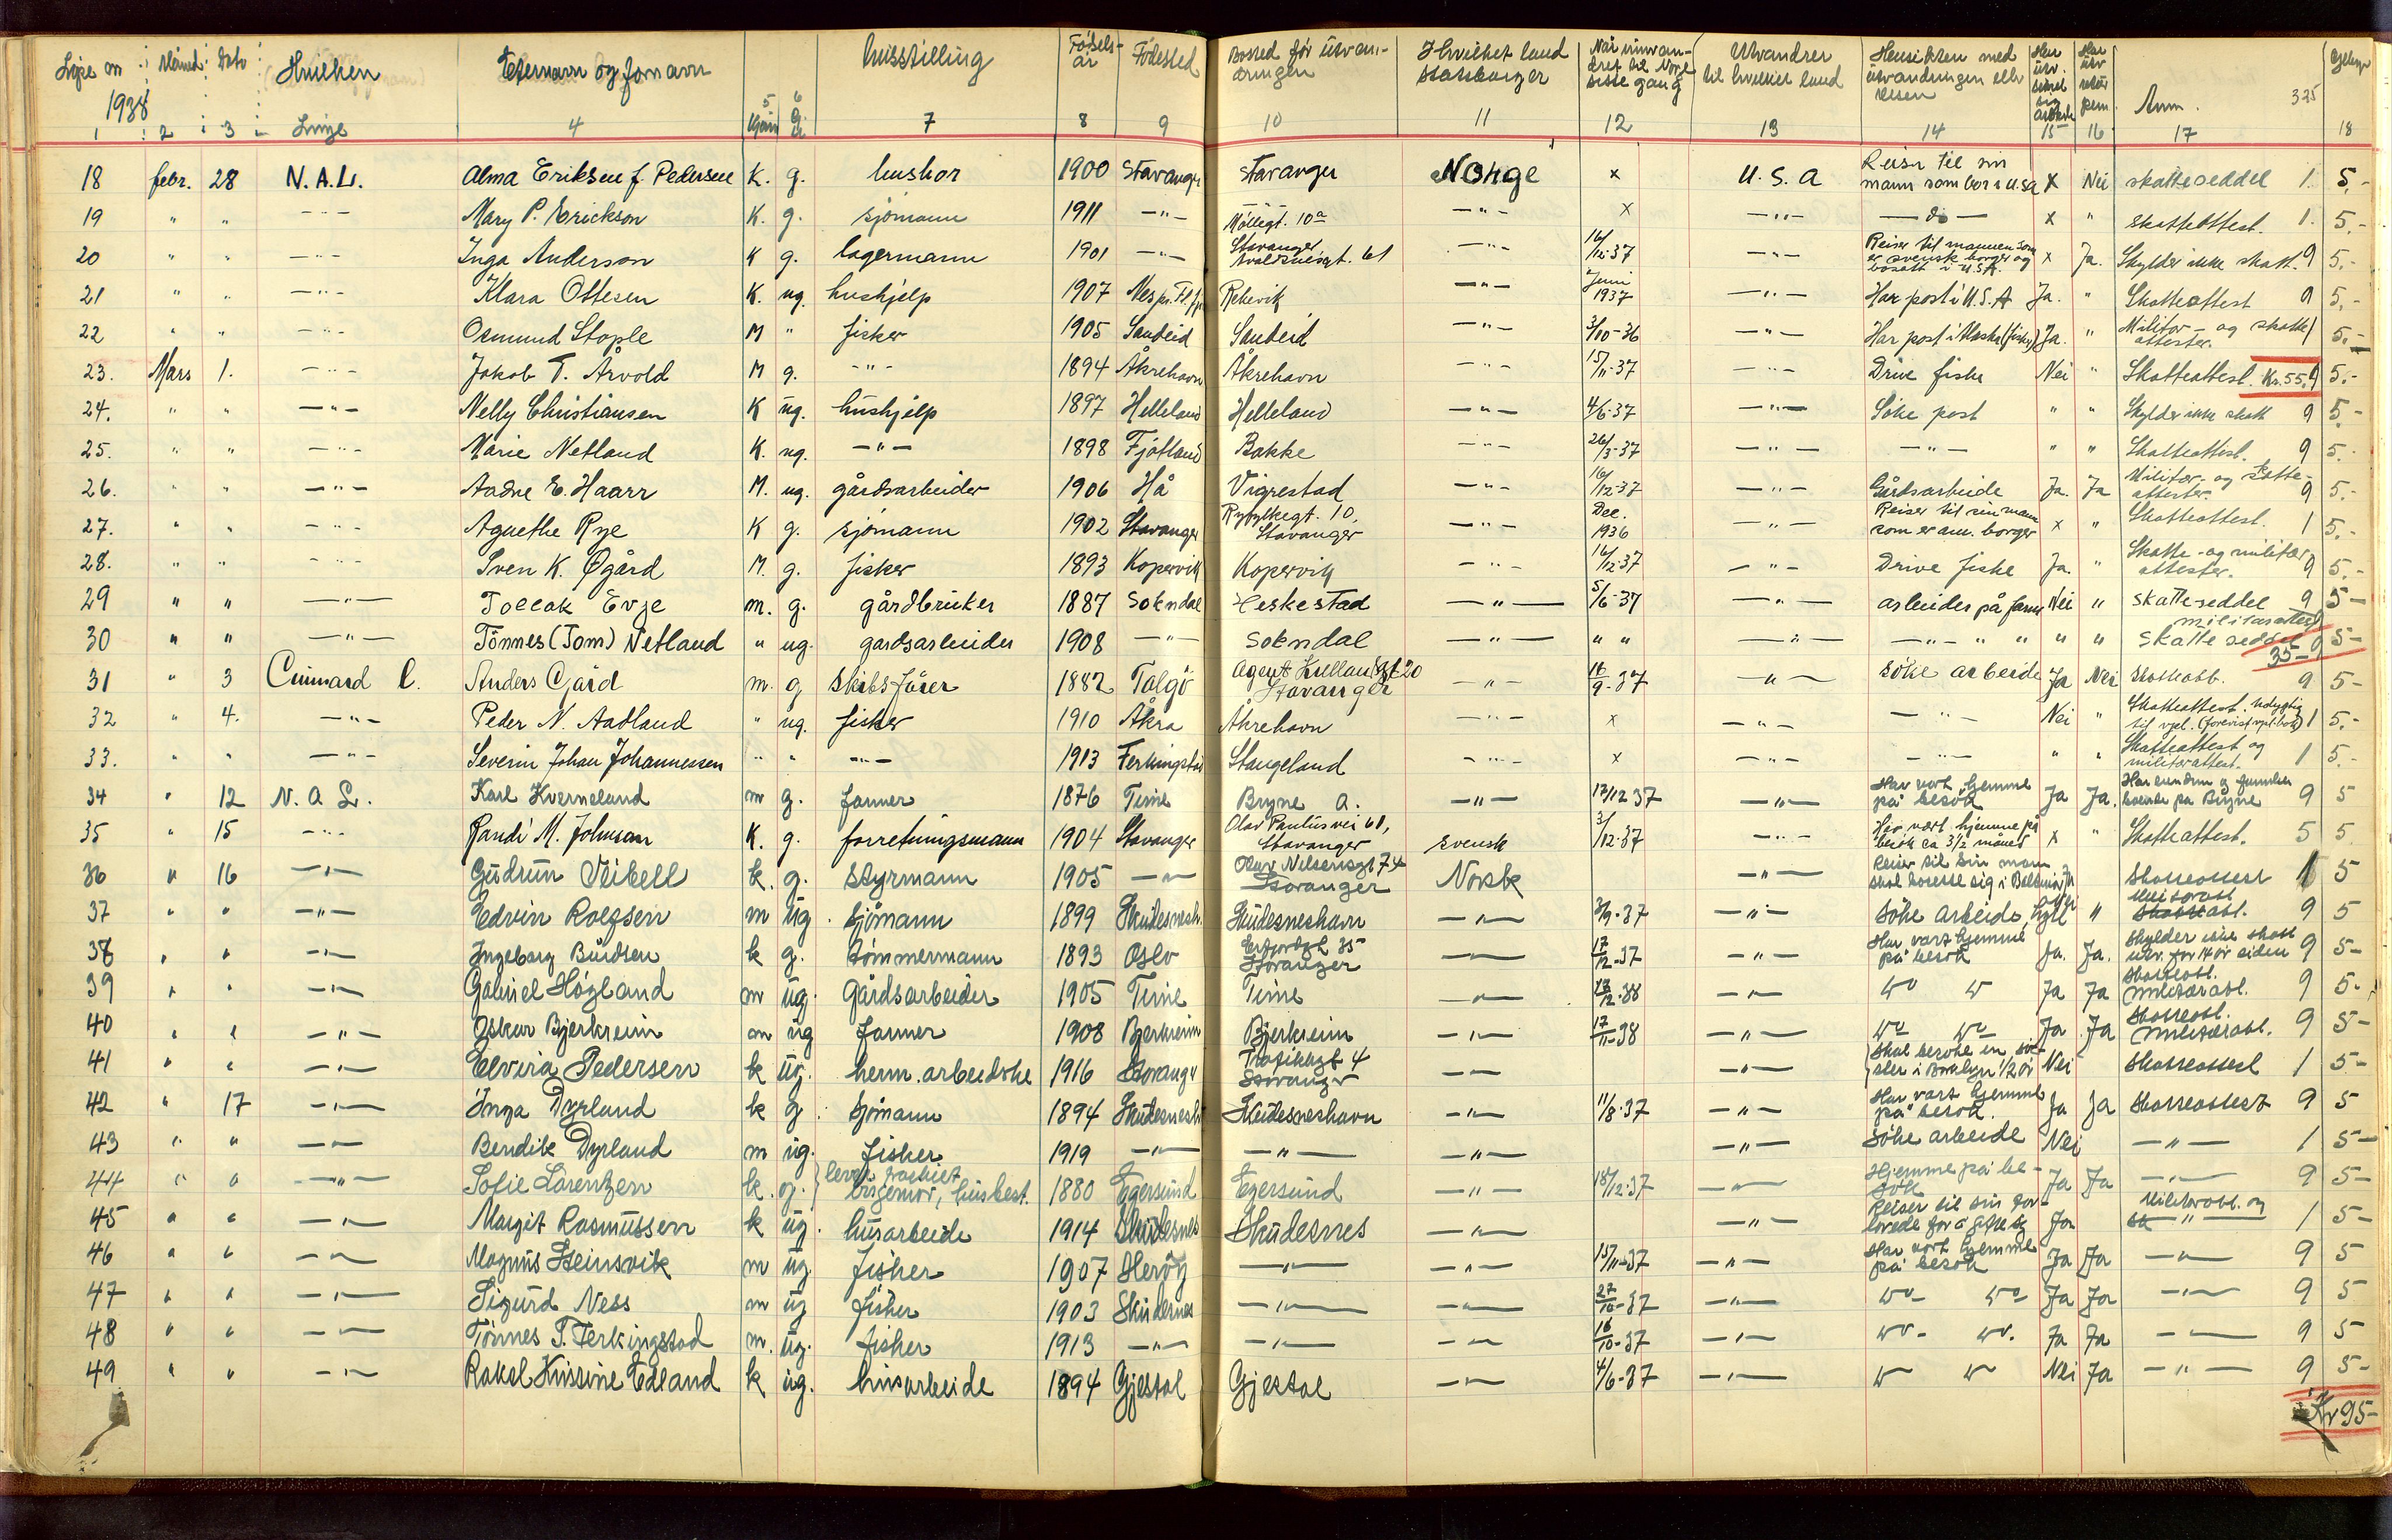 Måned Dato Hvilken Etternavn og fornavn livsstilling Fødels- år Fødested Bosted før utvan- dringen Hvilket land statsborger Når innvan- dret til Norge siste gang Utvandrer til hvilket land Hensikten med utvandringen eller reisen Anm. 325
1938 Linje
1 2 3 4 5 6 7 8 9 10 11 12 13 14 15 16 17 18
18 febr. 28 N.A.L. Alma Eriksen f. Pedersen K. g. 1900 Stavanger Stavanger Norge x U.S.A Reiser til sin mann som bor i U.S.A x Nei skatteseddel 1 5.-
19 " " -"- Mary P. Erickson K. g. sjømann 1911 -"- Møllegt. 10a -"- x -"- -do- x " skatteattest. 1. 5.-
20 " " -"- Inga Anderson K g. lagermann 1901 -"- Stavanger Avaldsnesgt. 61 -"- 16/12-37 -"- Reiser til mannen som er svensk borger og bosatt i U.S.A. x Ja. Skylder ikke skatt. 9 5.-
21 " " -"- Klara Ottesen K. ug. hushjelp 1907 Rekevik -"- Juni 1937 -"- Har post i U.S.A Ja. " Skatteattest 9 5.-
22 " " -"- Osmund Stople M " fisker 1905 Sandeid Sandeid -"- 3/10-36 -"- Har post i Alaska (fiske) Ja. " Militær- og skatte attester. 1 5.-
23. Mars 1. -"- Jakob T. Årvold M g. -"- 1894 Åkrehavn Åkrehavn -"- 15/11-37 -"- Drive fiske Nei " Skatteattest. Kr. 55, 9 5.-
24. " " -"- Nelly Christiansen K ug. hushjelp 1897 Helleland Helleland -"- 4/6-37 -"- Søke post " " Skylder ikke skatt 9 5.-
25. " " -"- Marie Netland K. ug. -"- 1898 Fjotland Bakke -"- 26/3-37 -"- -"- " " Skatteattest. 9 5.-
26. " " -"- Aadne E. Haarr M. ug. gårdsarbeider 1906 Hå Vigrestad -"- 16/12-37 -"- Gårdsarbeide Ja. Ja Militær- og skatte- attester. 9 5.-
27. " " -"- Agnethe Rye K g. sjømann 1902 Stavanger Ryfylkegt. 10, Stavanger -"- Dec. 1936 -"- Reiser til sin mann som er am. borger x " Skatteattest. 1 5.-
28. " " -"- Sven K. Øgård M. g. fisker 1893 Kopervik Kopervik -"- 16/12-37 -"- Drive fiske Ja. " Skatte- og militær attester. 9 5.-
29 " " -"- Tollak Evje m. g. gårdbruker 1887 Sokndal Heskestad -"- 5/6-37 -"- arbeider på farm Nei " skatteseddel 9 5-
30 " " -"- Tønnes (Tom) Netland " ug. gardsarbeider 1908 -"- Sokndal -"- " " -"- -"- " " " " militærattest skatteseddel 9 5-
35-
31 " 3 Cunnard L. Anders Gard m. g skibsfører 1882 Talgø Stavanger -"- 16/9-37 -"- søke arbeide Ja Nei skatteatt. 9 5-
32 " 4. -"- Peder N. Aadland " ug. fisker 1910 Åkra Åkrehavn -"- x -"- -"- Nei " Skatteattest. Udygtig til vpl. (forevist vpl.bok) 1 5.-
33. " " -"- Severin Johan Johannessen " " -"- 1913 Ferkingstad Stangeland -"- x -"- -"- " " Skatteattest og militærattest. 1 5.-
34 " 12 N.A.L. Karl Kverneland m g. farmer 1876 Time Bryne a. -"- 12/12 37 -"- Har vært hjemme på besøk Ja Ja. 9 5
35 " 15 -"- Randi M. Johnson K. g. forretningsmann 1904 Stavanger Olav Paulusvei 61, Stavanger svensk 3/12-37 -"- Har vært hjemme på besøk ca 3½ måned x " Skatteattest. 5 5
36 " 16 -"- Gudrun Veibell k. g. styrmann 1905 -"- Olav Nilsensgt 74 Stavanger Norsk -"- Reiser til sin mann skal bosette sig i Skatteattest 1 5
37 " " -"- Edvin Roezsen m ug. sjømann 1899 Skudesnesh. Skudesneshavn -"- 3/9-37 -"- søke arbeide " Militæratt 9 5
38 " " -"- Ingeborg Bürdsen k g. tømmermann 1893 Oslo Erfjordgt 35 Stavanger -"- 17/12-37 -"- Har vært hjemme på besøk Ja. Ja. Skylder ikke skatt utv. for 14 år siden 9 5-
39 " " -"- Gabriel Høgland m ug. gårdsarbeider 1905 Time Time -"- 13/12-38 -"- Ja Ja Skatteatt. Militæratt. 9 5-
40 " " -"- Oskar Bjerkreim m ug farmer 1908 Bjerkreim Bjerkreim -"- 17/11-38 -"- Ja Ja Skatteatt. Militæratt. 9 5-
41 " " -"- Elvira Pedersen k ug. herm. arbeidske 1916 Stavanger Trafikkgt 4 Stavanger -"- -"- Skal besøke en søs- ter i Brooklyn 1/2 år Nei Skatteattest 1 5-
42 " 17 -"- Inga Dyrland k g. sjømann 1894 Skudesnesh. Skudesneshavn -"- 11/8-37 -"- Har vært hjemme på besøk. Ja Ja Skatteattest 9 5
43 " " -"- Bendik Dyrland m ug. fisker 1919 -"- -"- -"- -"- søke arbeide Nei -"- 1 5-
44 " " -"- Sofie Lorentzen k. g. husbest. 1880 Egersund Egersund -"- 18/12-37 -"- Hjemme på be- søk Ja Ja -"- 9 5-
45 " " -"- Margit Rasmussen k ug. husarbeide 1914 Skudesnes Skudesnes -"- -"- Reiser til sin for- lovede for å gifte sig Ja Militæratt. og -"- 1 5-
46 " " -"- Magnus Steinsvik m ug. fisker 1907 Herøy -"- -"- 15/11-37 -"- Har vært hjemme på besøk Ja Ja -"- 9 5
47 " " -"- Sigurd Ness m ug fisker 1903 Skudesnes -"- -"- 27/10-37 -"- Ja Ja -"- 9 5
48 " " -"- Tønnes T. Ferkingstad m. ug. fisker 1913 -"- -"- -"- 16/10-37 -"- Ja Ja -"- 9 5
49 " " -"- Rakel Kirstine Edland k ug. husarbeide 1894 Gjestal Gjestal -"- 4/6-37 -"- Nei Ja -"- 9 5-
Kr 95-